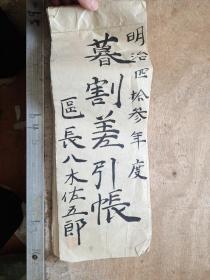 明治四拾参年度
暮割差引帳
區長八木佐五郎